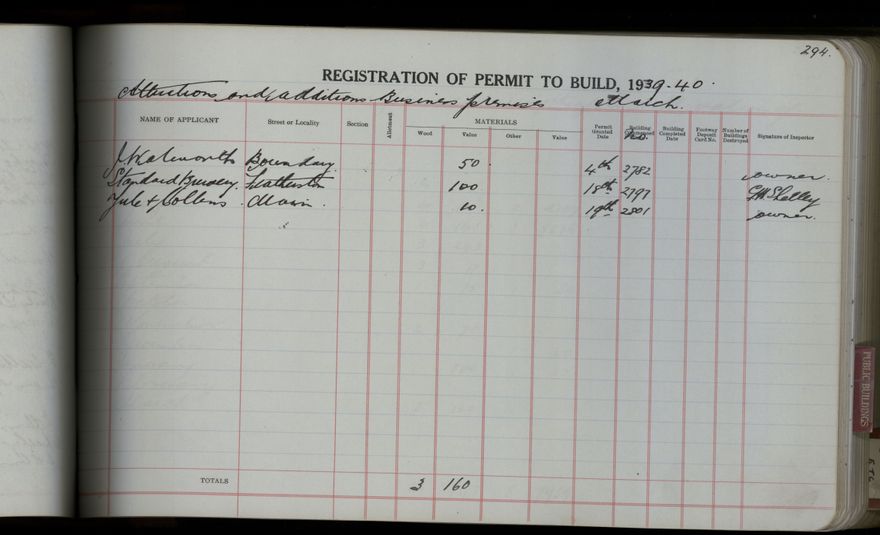 294.
REGISTRATION OF PERMIT TO BUILD, 1939-40.
Alterations and additions Business premises March.
NAME OF APPLICANT Street or Locality Section Allotment MATERIALS Wood Value Other Value Permit Granted Date Building Commenced No Building Completed Date Footway Deposit Card No. Number of Buildings Destroyed Signature of Inspector
Boundary 50. 4th 2782 owner.
Standard Brewery. 100 18th 2797 Shelley
Yule & Collins. Main. 10. 19th 2801 owner.
TOTALS 3 160
PUBLIC BUILDINGS